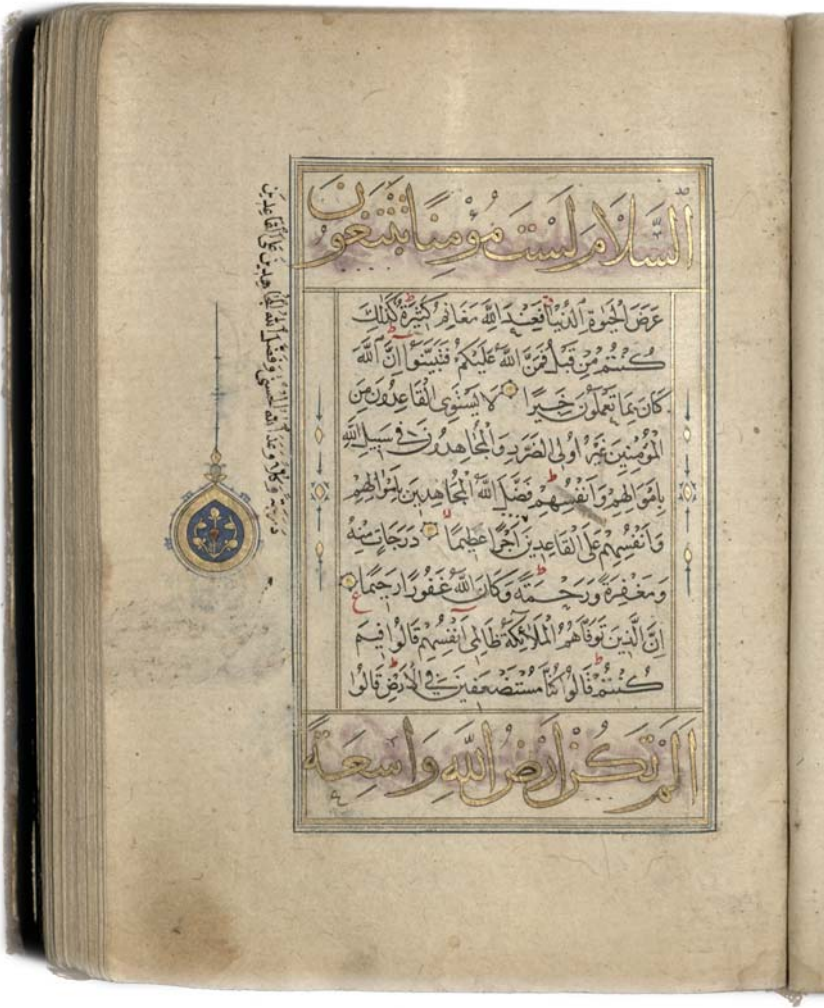 السَّلَامَ لَسْتَ مُؤْمِنًا تَبْتَغُونَ
عَرَضَ الْحَيٰوةِ الدُّنْيَا فَعِنْدَ اللّٰهِ مَغَانِمُ كَثِيرَةٌ كَذٰلِكَ
كُنْتُمْ مِنْ قَبْلُ فَمَنَّ اللّٰهُ عَلَيْكُمْ فَتَبَيَّنُوا اِنَّ اللّٰهَ
كَانَ بِمَا تَعْمَلُونَ خَبِيرًا لَا يَسْتَوِي الْقَاعِدُونَ مِنَ
الْمُؤْمِنِينَ غَيْرُ اُولِي الضَّرَرِ وَالْمُجَاهِدُونَ فِي سَبِيلِ اللّٰهِ
بِاَمْوَالِهِمْ وَاَنْفُسِهِمْ فَضَّلَ اللّٰهُ الْمُجَاهِدِينَ بِاَمْوَالِهِمْ
وَاَنْفُسِهِمْ عَلَى الْقَاعِدِينَ اَجْرًا عَظِيمًا دَرَجَاتٍ مِنْهُ
وَمَغْفِرَةً وَرَحْمَةً وَكَانَ اللّٰهُ غَفُورًا رَحِيمًا
اِنَّ الَّذِينَ تَوَفَّاهُمُ الْمَلَائِكَةُ ظَالِمِي اَنْفُسِهِمْ قَالُوا فِيمَ
كُنْتُمْ قَالُوا كُنَّا مُسْتَضْعَفِينَ فِي الْاَرْضِ قَالُوا
اَلَمْ تَكُنْ اَرْضُ اللّٰهِ وَاسِعَةً
دَرَجَةً وَكُلًّا وَعَدَ اللّٰهُ الْحُسْنٰى وَفَضَّلَ اللّٰهُ الْمُجَاهِدِينَ عَلَى الْقَاعِدِينَ